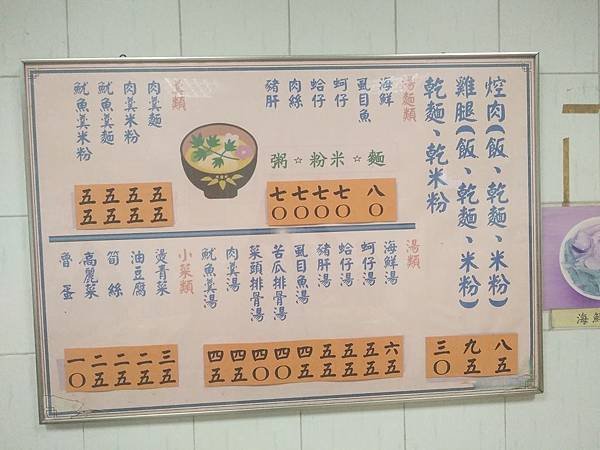 焢肉(飯、乾麵、米粉)
雞腿(飯、乾麵、米粉)
乾麵、乾米粉
八五
九五
三〇
湯麵類
海鮮
虱目魚
蚵仔
蛤仔
肉絲
豬肝
粥☆粉米☆麵
八〇
七〇
七〇
七〇
七〇
羹類
肉羹麵
肉羹米粉
魷魚羹麵
魷魚羹米粉
五五
五五
五五
五五
湯類
海鮮湯
蚵仔湯
蛤仔湯
豬肝湯
虱目魚湯
苦瓜排骨湯
菜頭排骨湯
肉羹湯
魷魚羹湯
六五
五五
五五
五五
四五
四〇
四〇
四五
四五
小菜類
燙青菜
油豆腐
筍絲
高麗菜
魯蛋
三五
二五
二五
二五
一〇
海鮮